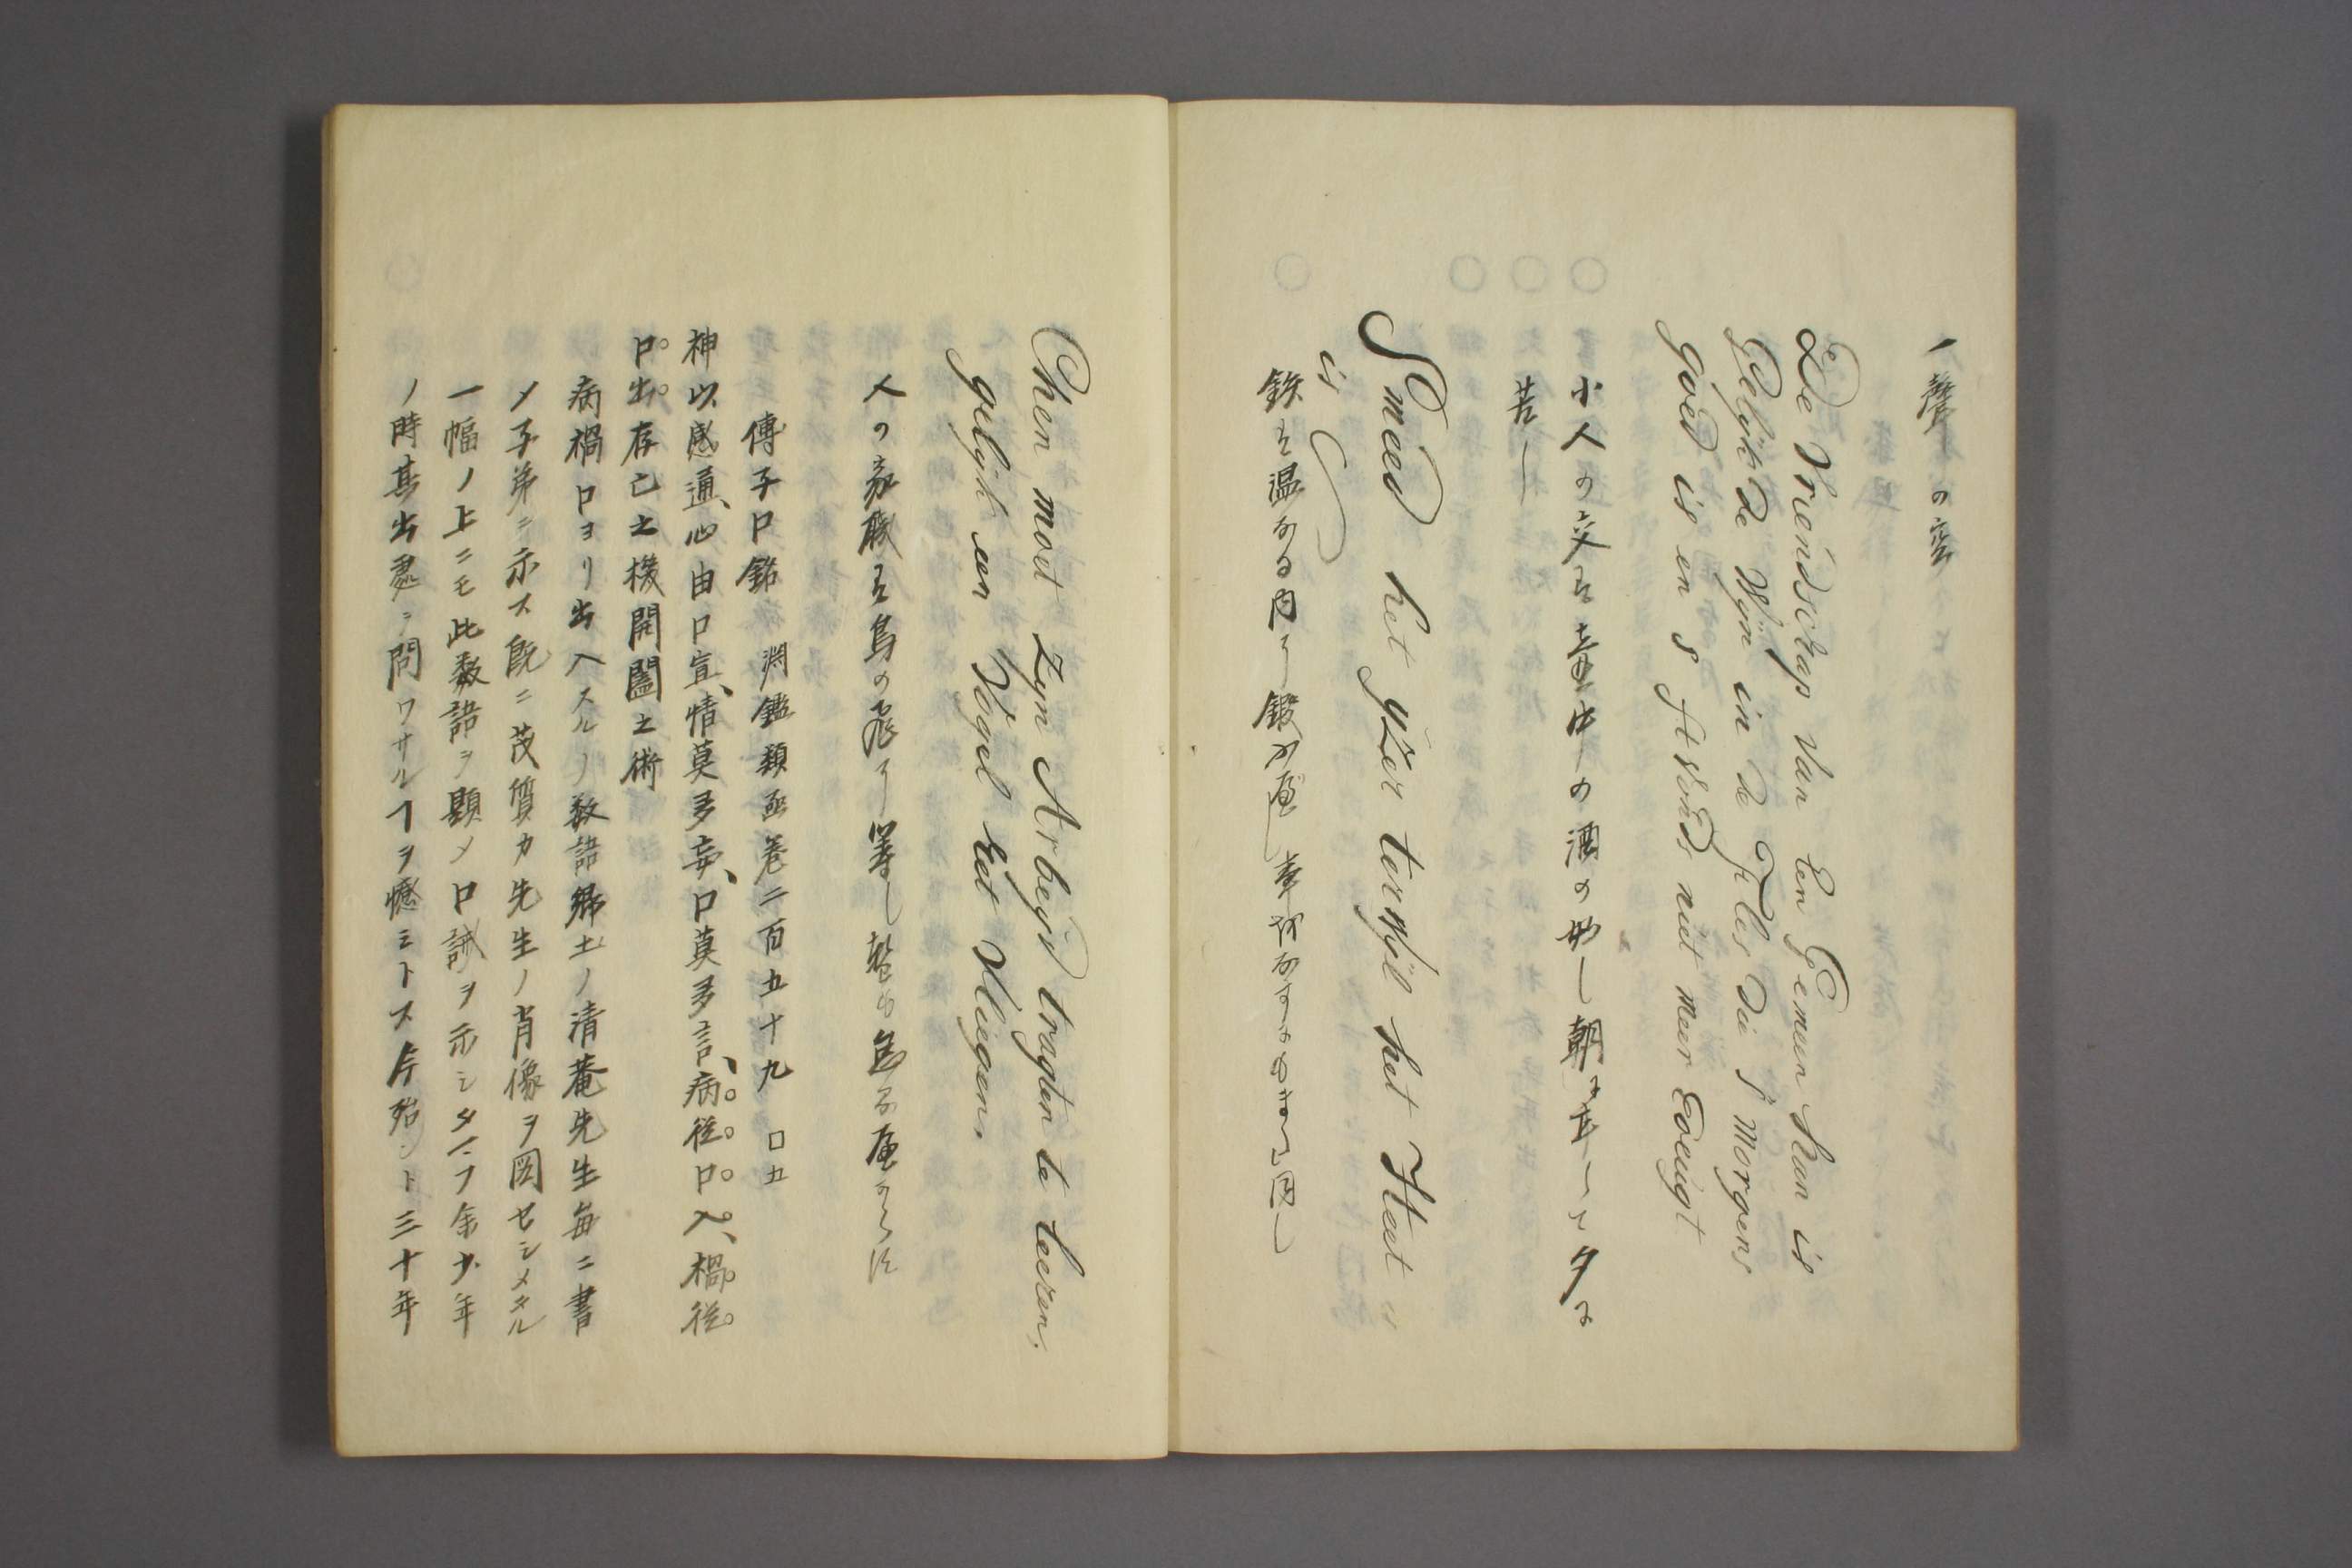 一聲の空
De Vriendschap Van Een Gemeen Man is
Gelijk de Wijn in de Fles Die s' Morgens
goed is en s Avonds niet meer Eoeugt
小人の交は壷中の酒の如し朝に正しくて夕に
苦し
Smeed het yzer terwijl het Heet is
is
鉄は温なる内に鍛ふ
Men moet zyn Arbeyd tragten te leeren,
gelijk een Vogel het vliegen.
人の家職は鳥の飛に等し
傅子口銘 渕鑑類函巻二百五十九 口五
神以感通、心由口宣、情莫多妄、口莫多言、病從口入、禍從
口出。存亡之機開闔之術
病禍口ヨリ出入スルノ数語郷土ノ清菴先生毎ニ書
メ子弟ニ示ス既ニ茂質カ先生ノ肖像ヲ図セシメタル
一幅ノ上ニモ此数語ヲ顕メ口誡ヲ示シタマフ余少年
ノ時其出處ニ問ワサルヿヲ憾ミトス今殆ント三十年